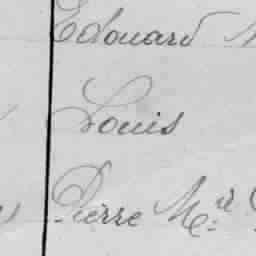 Edouard
Louis
Pierre M.r